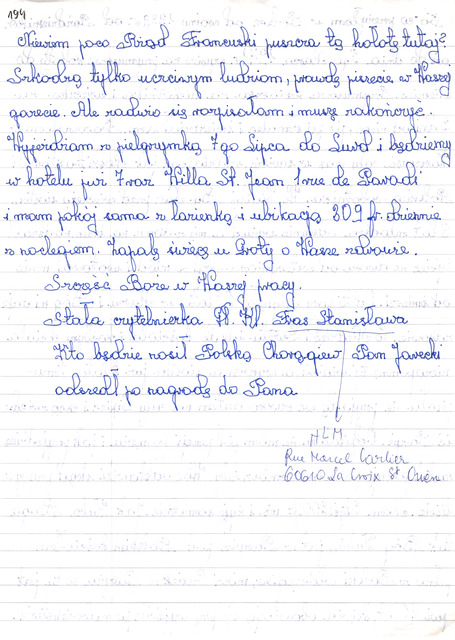 194
Niewim poco Rząd Francuski puszcza tą hołotę tutaj?
Szkodzą tylko uczciwym ludziom, prawdę piszecie w Waszej
gazecie. Ale zadużo się rozpisałam i muszę zakończyć.
Wyjerdzam z pielgrzymką 7go Lipca do Lurd i będziemy
w hotelu już 7 raz Willa St. Jean 1 rue de Paradi
i mam pokój sama z łazienką i ubikacją 309 fr. dziennie
z noclegiem. Zapalę świecę u Groty o Wasze zdrowie.
Szczęść Boże w Waszej pracy.
Stała czytelnierka Fras Stanisława
Kto będzie nosił Polską Chorągiew Pan Jarecki
odszedł po nagrodę do Pana
HLM
Rue Marcel Carlier
60610 La Croix St Ouen